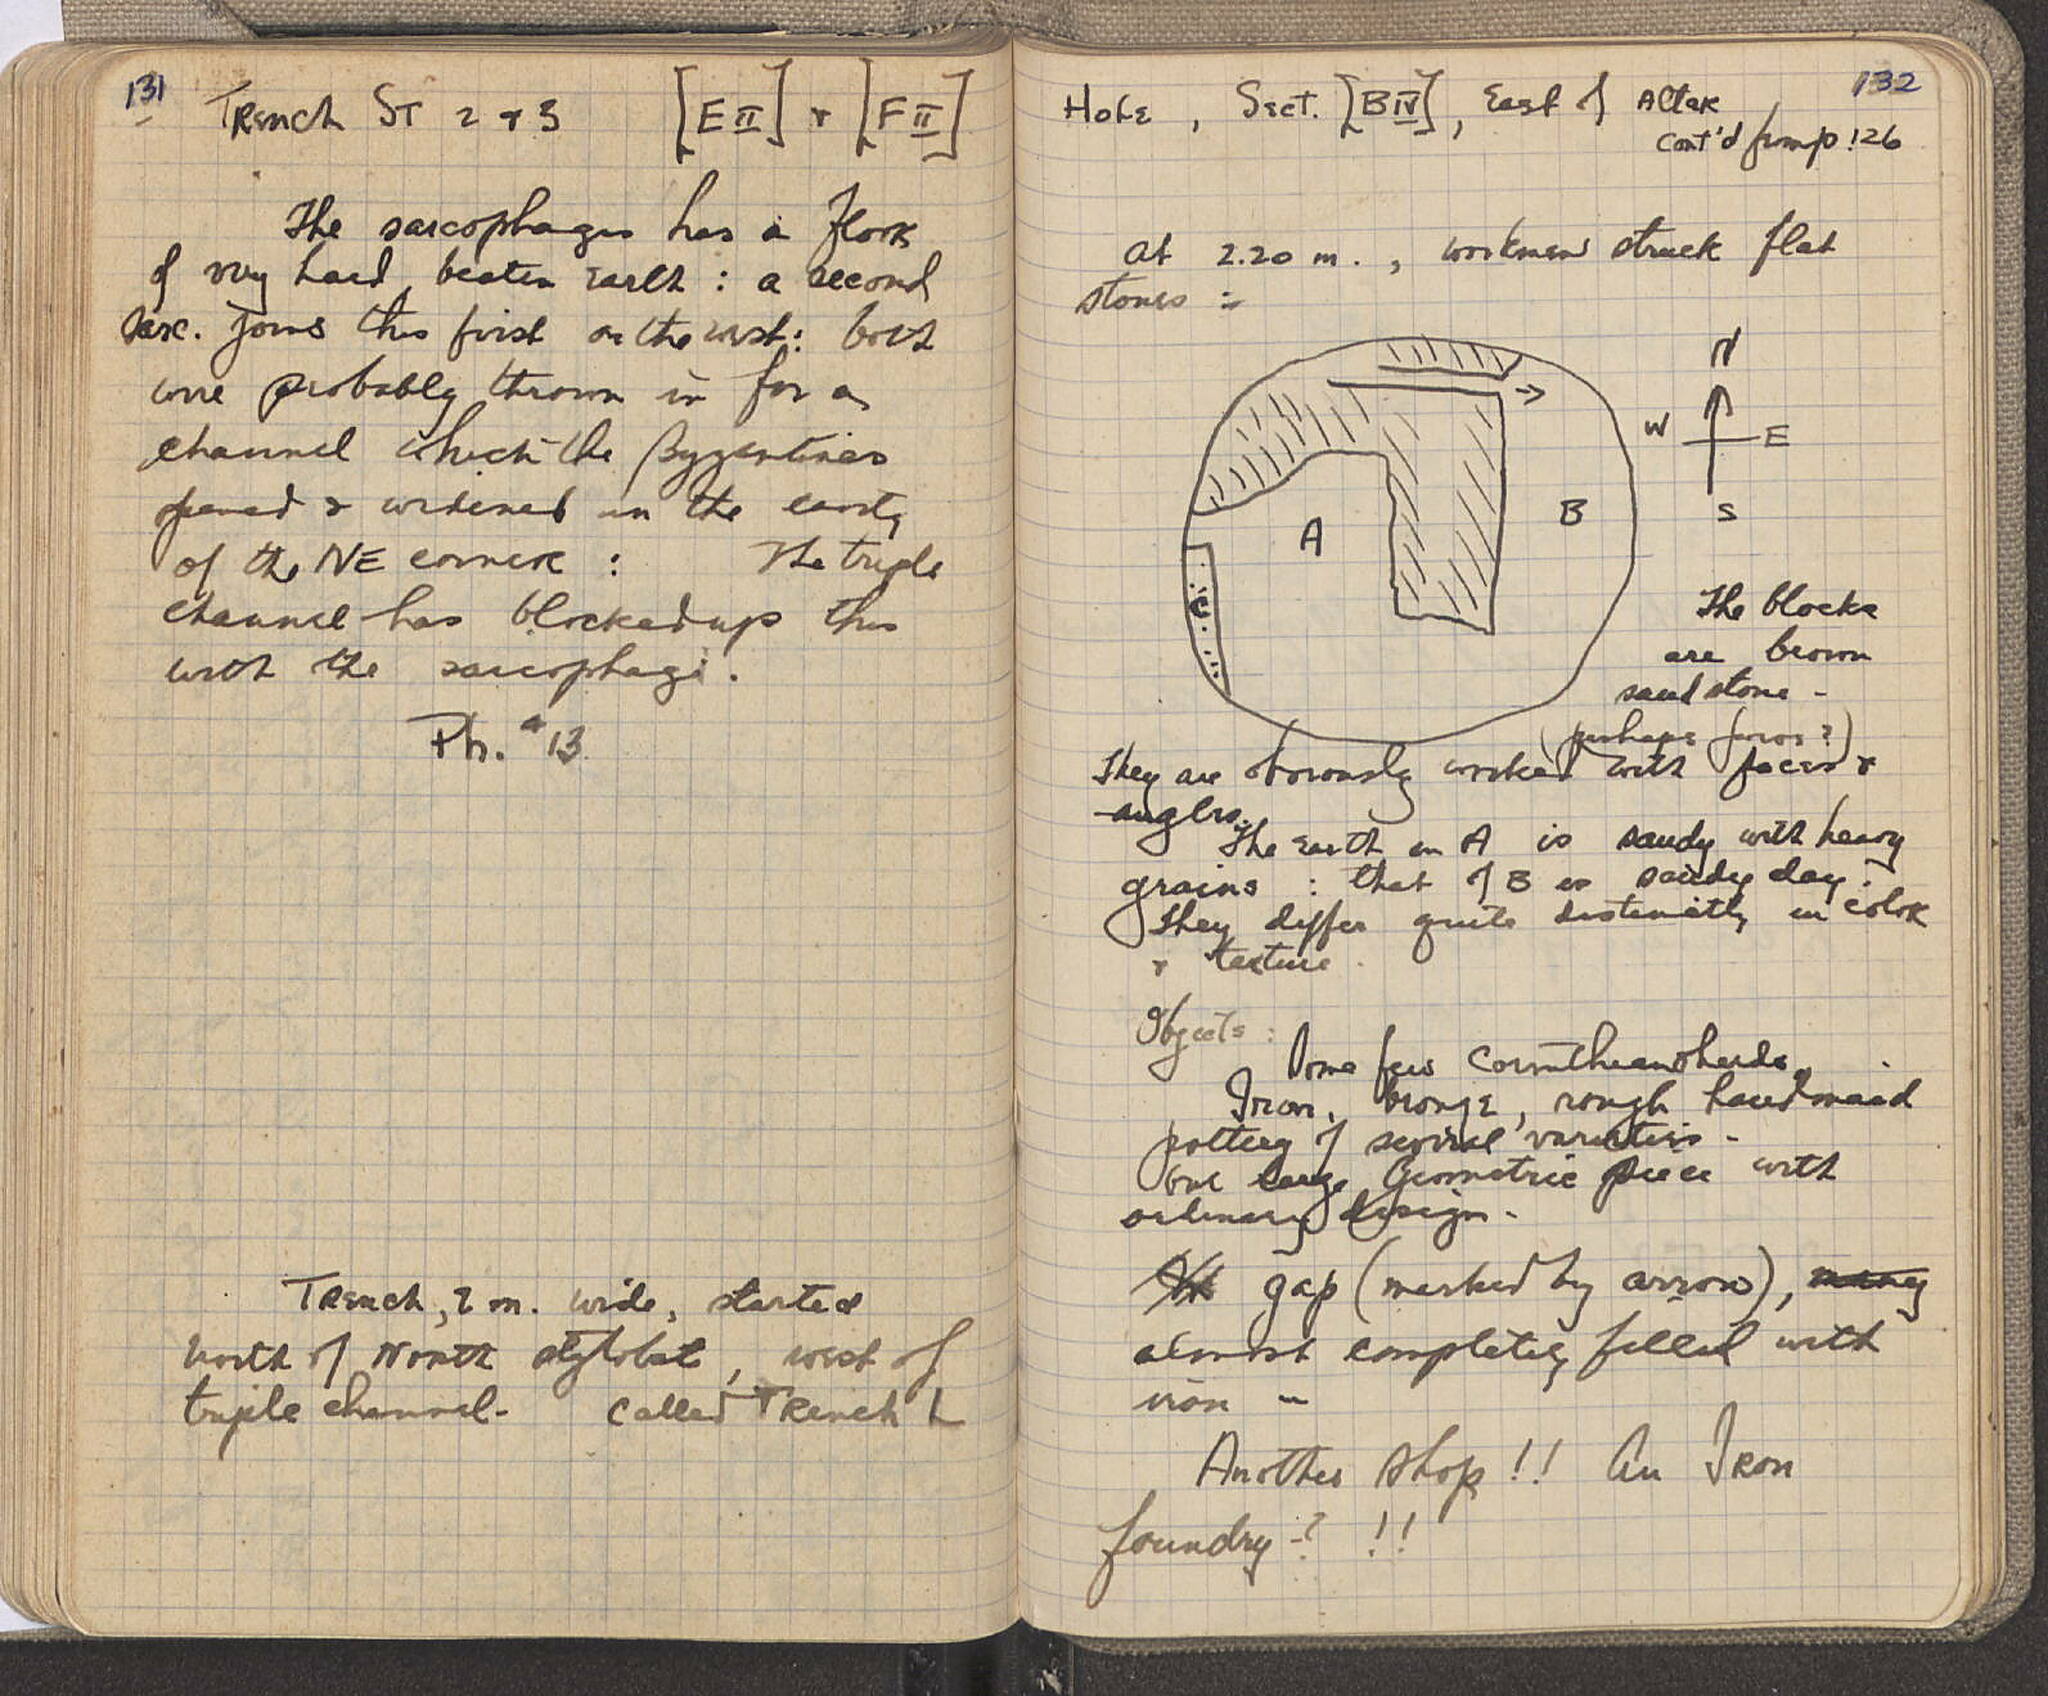 131
Trench ST 2 + 3 [E II] + [F II]
The sarcophagus has a floor
of very hard beaten earth : a second
sarc. joins this first on the west : both
were probably thrown in for a
channel which the Byzantines
opened & widened in the
of the NE corner : The triple
channel has blocked up this
with the sarcophagi.
Ph. # 13
Trench, 2 m. wide, started
north of North stylobat, west of
triple channel. Called Trench L
132
Hole, Sect. [B IV], East of Altar,
Cont'd from p 126
At 2.20 m., workmen struck flat
stones :
N
W E
S
A
B
C
The blocks
are brown
sandstone -
(perhaps poros?)
They are obviously worked with faces +
angles.
The earth in A is sandy with heavy
grains : that of B is sandy clay.
They differ quite distinctly in color
+ texture.
Objects :
Some few Corinthian sherds.
Iron, bronze, rough handmaid
pottery of several varieties -
one large Geometric piece with
ordinary design -
gap (marked by arrow), many
almost completely filled with
iron -
Another shop !! An Iron
foundry ? !!